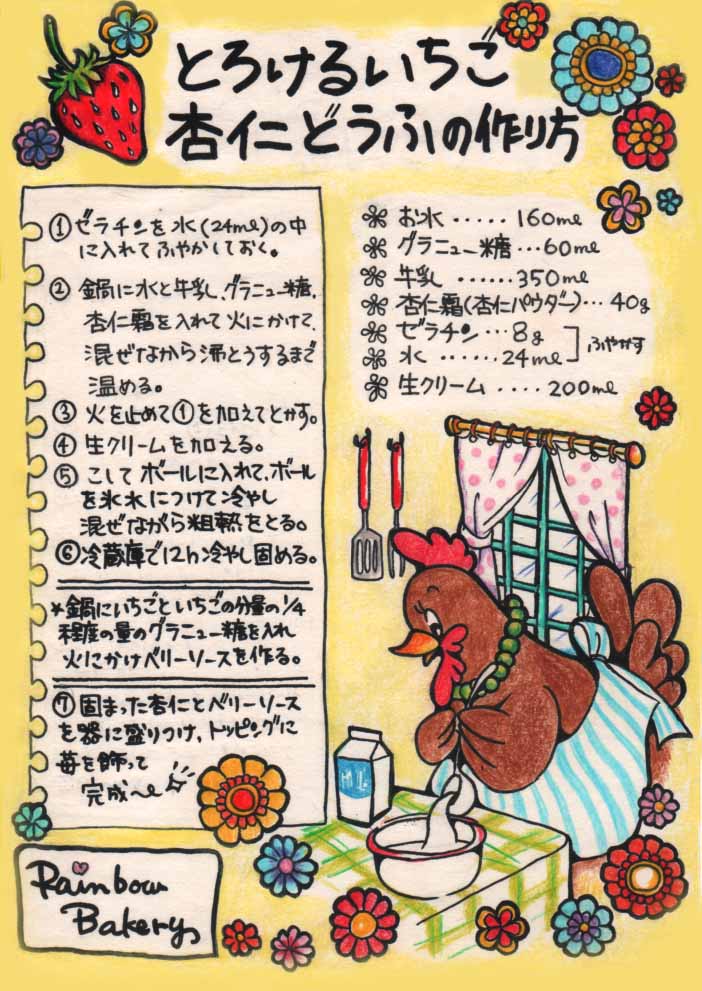 とろけるいちご
杏仁どうふの作り方
①ゼラチンを水(24ml)の中
に入れてふやかしておく。
② 鍋に水と牛乳、グラニュー糖、
杏仁霜を入れて火にかけて、
混ぜながら沸とうするまで
温める。
③ 火を止めて①を加えてとかす。
④ 生クリームを加える。
⑤ こして ボールに入れて、ボール
を氷水につけて冷やし
混ぜながら粗熱をとる。
⑥冷蔵庫で12h冷やし固める。
*鍋にいちごといちごの分量の1/4
程度の量のグラニュー糖を入れ
火にかけベリーソースを作る。
⑦固まった杏仁とベリーソース
を器に盛りつけ、トッピングに
苺を飾って
完成〜
お水 ..... 160ml
グラニュー糖 ...60ml
牛乳 ......350ml
杏仁霜(杏仁パウダー)... 40g
ゼラチン ...8g
ふやかす
水 ......24ml
生クリーム .... 200ml
MIL
Rainbow
Bakery